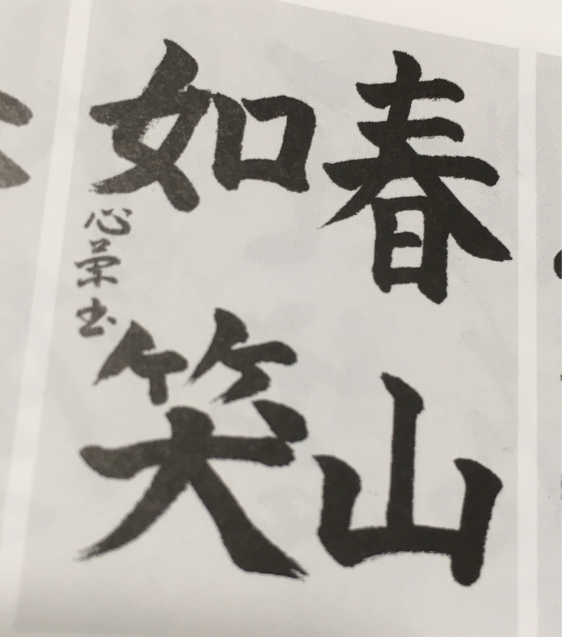 春山
如笑
心栄書